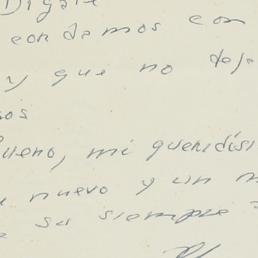 Dígale
condemos con
y que no deje
os
Bueno, mi queridísi
nuevo y un
su siempre